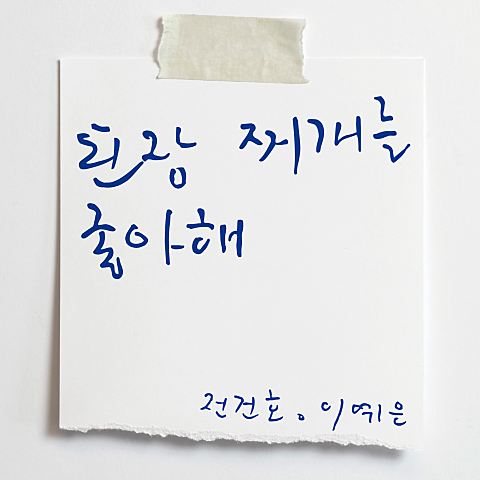 된장 찌개를
좋아해
전건호。이예은